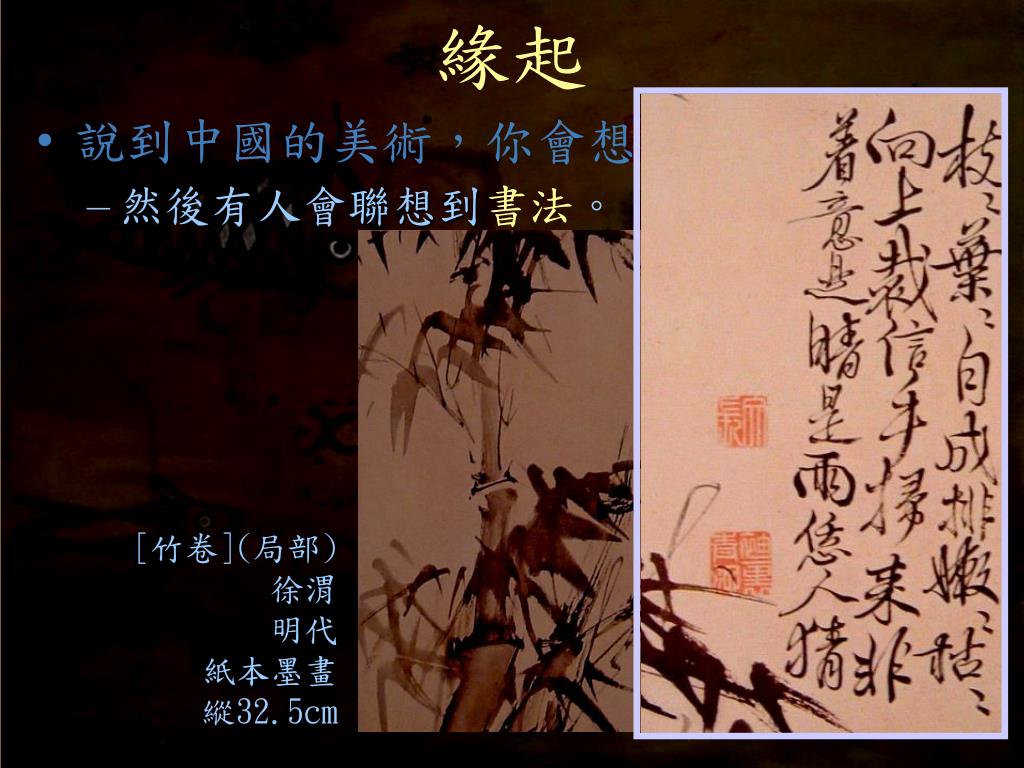 緣起
• 說到中國的美術，你會想
– 然後有人會聯想到書法。
[竹卷](局部)
徐渭
明代
紙本墨畫
縱32.5cm
枝〻葉〻自成排嫩〻枯〻
向上裁信手掃来非
着意是晴是雨恁人猜